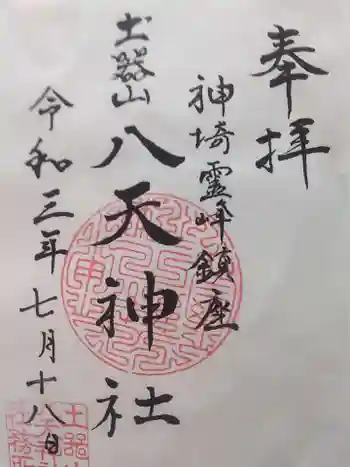 奉拝
神埼霊峰鎮座
土器山
八天神社
令和三年七月十八日